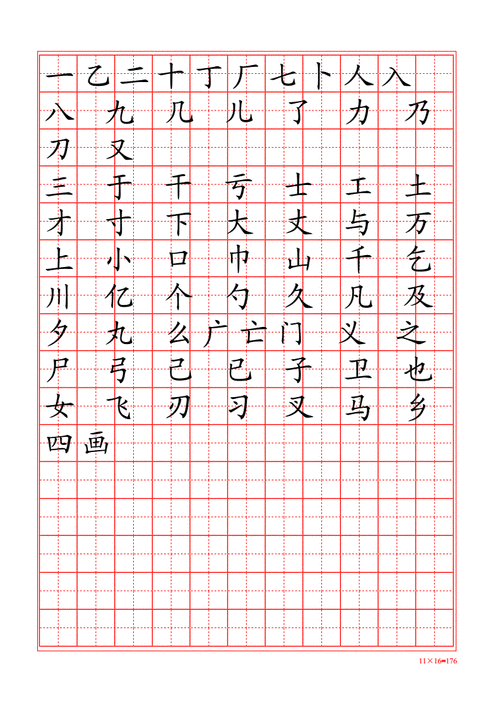 一乙二十丁厂七卜人入
八 九 几 儿 了 力 乃
刀 又
三 于 干 亏 士 工 土
才 寸 下 大 丈 与 万
上 小 口 巾 山 千 乞
川 亿 个 勺 久 凡 及
夕 丸 么 广 亡 门 义 之
尸 弓 己 已 子 卫 也
女 飞 刃 习 叉 马 乡
四画
11×16=176